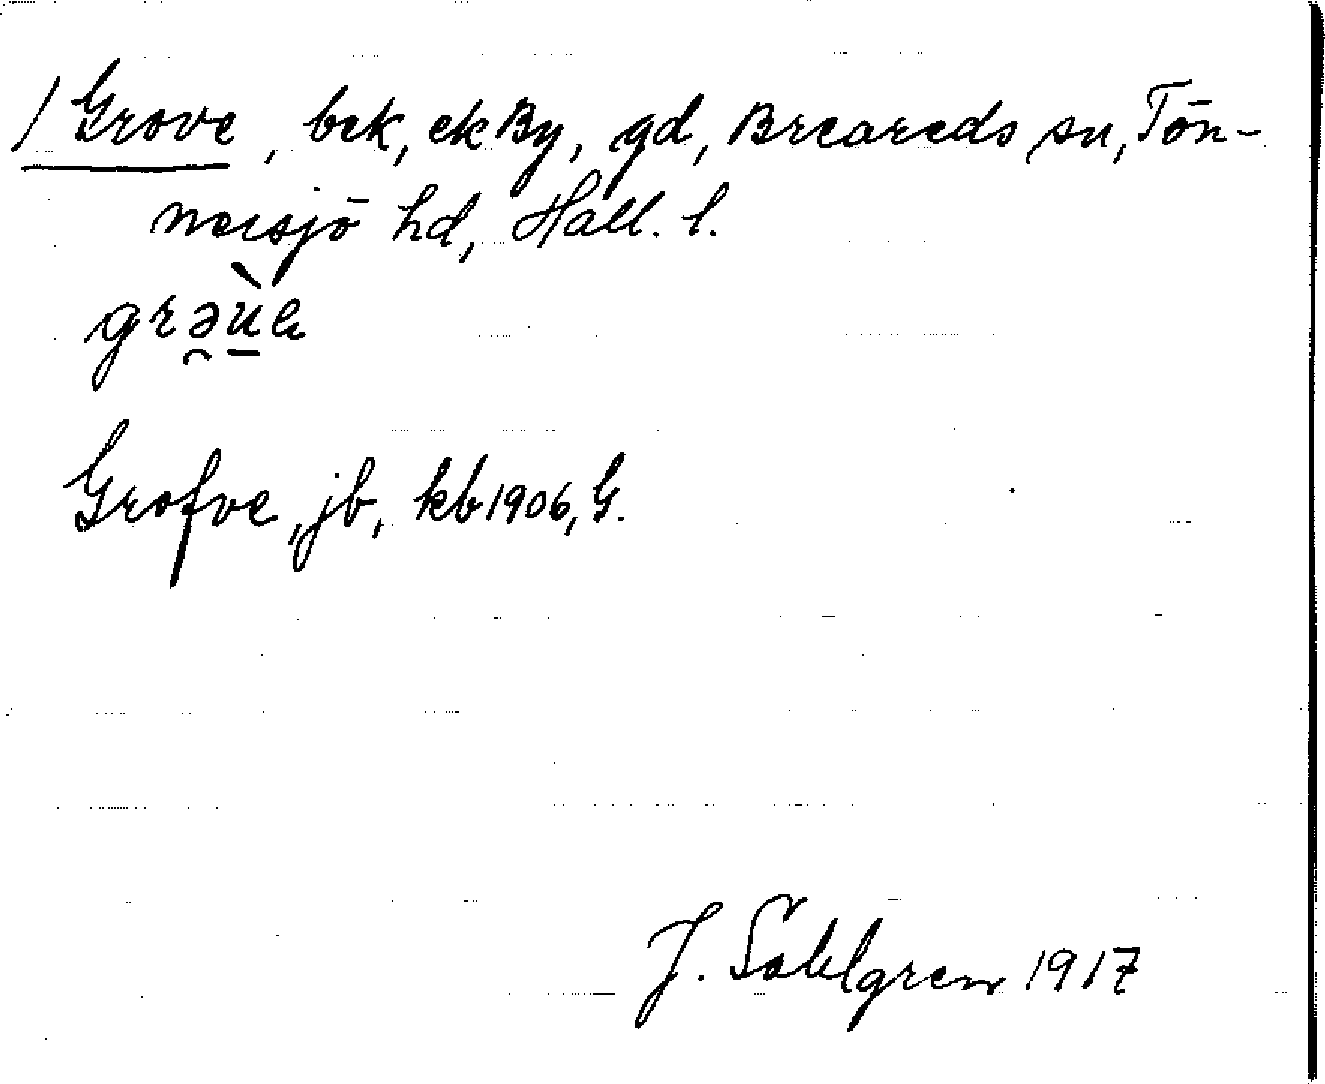 / Grove, bek, ek By, gd, Breareds sn, Tön-
nersjö hd, Hall. l.
grə̯ù̱ɐ
Grofve, jb, kb 1906, G.
J. Sahlgren 1917